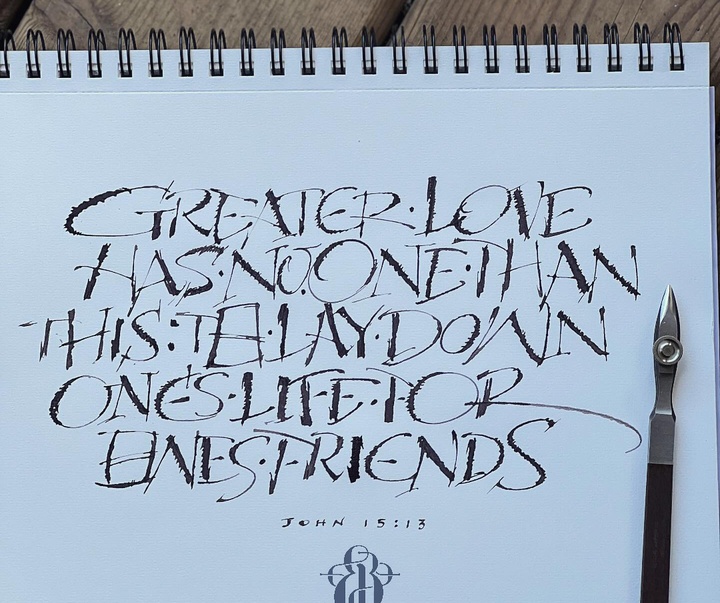 GREATER·LOVE
HAS·NO·ONE·THAN
THIS:TO·LAY·DOWN
ONES·LIFE·FOR
ONES·FRIENDS
JOHN 15:13